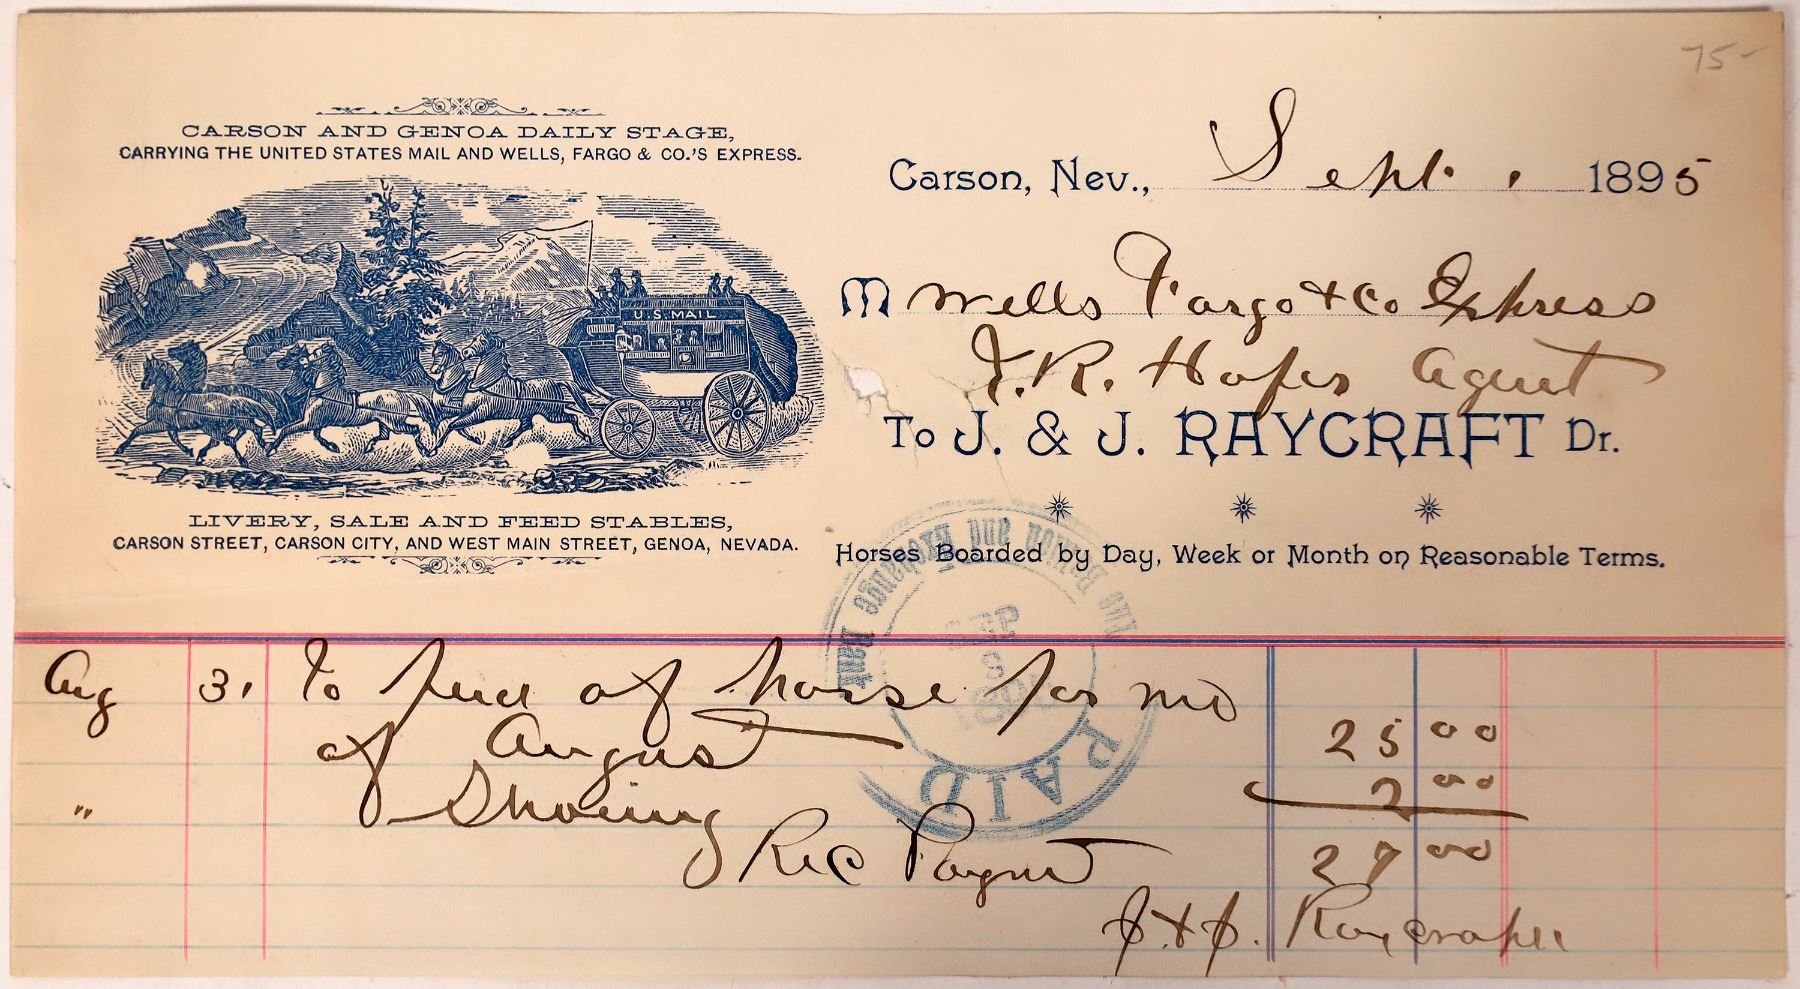 75-
CARSON AND GENOA DAILY STAGE,
CARRYING THE UNITED STATES MAIL AND WELLS, FARGO & CO.'S EXPRESS.
U.S. MAIL
LIVERY, SALE AND FEED STABLES,
CARSON STREET, CARSON CITY, AND WEST MAIN STREET, GENOA, NEVADA.
Carson, Nev., Sept. 1895
M Wells Fargo & Co Express
J.R. Hofer Agent
To J. & J. RAYCRAFT Dr.
Horses Boarded by Day, Week or Month on Reasonable Terms.
The Bullion and Exchange Bank
SEP
PAID
Aug 31 To feed of horse for mo
of August 25 00
" Shoeing 2 00
27 00
Rec Paymt
J. & J. Raycraft